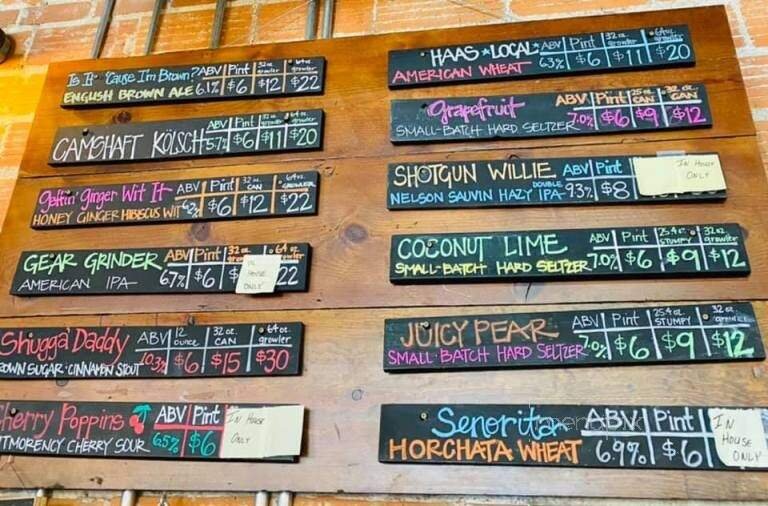 Is It 'Cause I'm Brown? ABV Pint 32 oz growler 64 oz growler
ENGLISH BROWN ALE 6.1% $6 $12 $22
CAMSHAFT KÖLSCH ABV Pint 32 oz growler 64 oz growler
5.7% $6 $11 $20
Gettin' Ginger Wit It ABV Pint 32 oz CAN 64 oz GROWLER
HONEY GINGER HIBISCUS WIT $6 $12 $22
GEAR GRINDER ABV Pint 32 oz 64 oz growler
AMERICAN IPA 6.7% $6 $ IN HOUSE ONLY 22
Shugga Daddy ABV 12 OUNCE 32 oz. CAN 64 oz growler
ROWN SUGAR · CINNAMON STOUT 10.3% $6 $15 $30
herry Poppins ABV Pint IN HOUSE ONLY
TMORENCY CHERRY SOUR 6.5% $6
HAAS LOCAL ABV Pint 32 oz growler 64 oz growler
AMERICAN WHEAT 6.3% $6 $11 $20
Grapefruit ABV Pint 25 oz CAN 32 oz CAN
SMALL-BATCH HARD SELTZER 7.0% $6 $9 $12
SHOTGUN WILLIE ABV Pint IN HOUSE ONLY
NELSON SAUVIN HAZY DOUBLE IPA 9.3% $8
COCONUT LIME ABV Pint 25.4 oz STUMPY 32 oz growler
SMALL-BATCH HARD SELTZER 7.0% $6 $9 $12
JUICY PEAR ABV Pint 25.4 oz STUMPY 32 oz growler
SMALL-BATCH HARD SELTZER 7.0% $6 $9 $12
Senorita ABV Pint IN HOUSE ONLY
HORCHATA WHEAT 6.9% $6